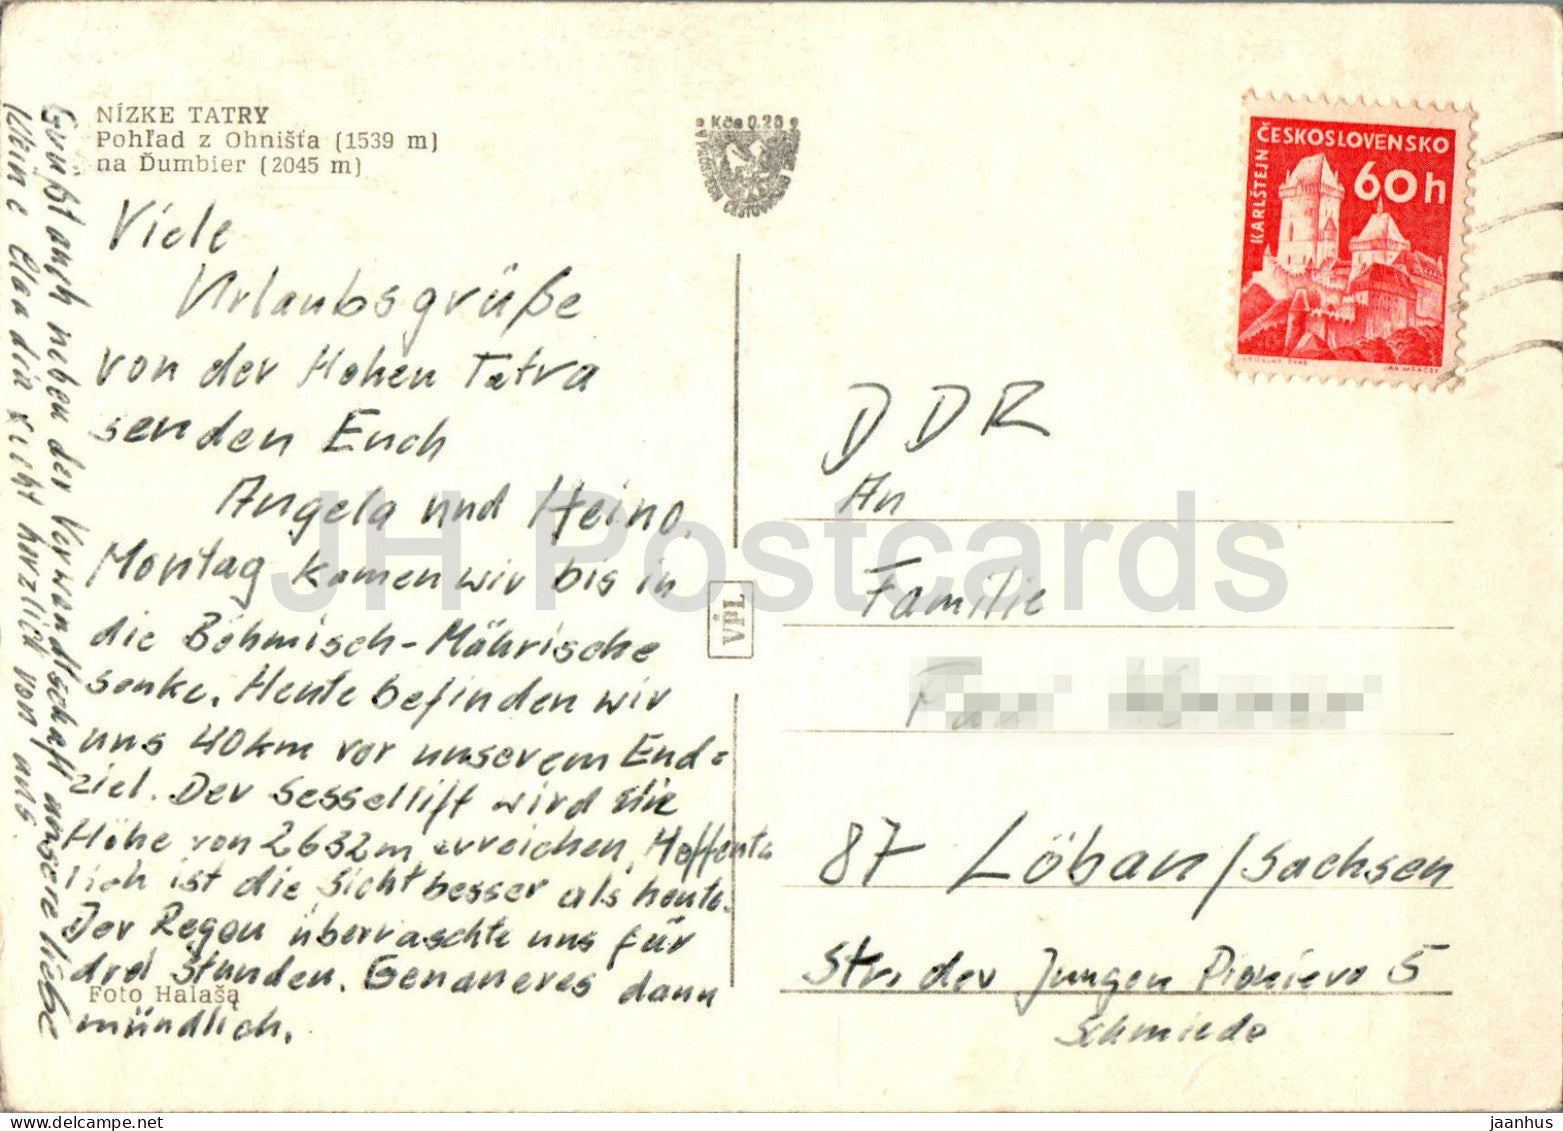 NÍZKE TATRY
Pohľad z Ohnišťa (1539 m)
na Ďumbier (2045 m)
Kčs 0.20
ČESKOSLOVENSKO
60h
KARLŠTEJN
Viele
Urlaubsgrüße
von der Hohen Tatra
senden Euch
Angela und Heino.
Montag kamen wir bis in
die Böhmisch-Mährische
senke. Heute befinden wir
uns 40km vor unserem End=
ziel. Der Sessellift wird die
Höhe von 2632m erreichen. Hoffent=
lich ist die Sicht besser als heute.
Der Regen überraschte uns für
drei Stunden. Genaueres dann
mündlich.
Grüßt auch neben der Verwandtschaft unsere liebe
kleine Claudia recht herzlich von uns.
Foto Halaša
VPL
DDR
An
Familie
87 Löbau/Sachsen
Str. der Jungen Pioniere 5
Schmiede
JH Postcards
www.delcampe.net
jaanhus